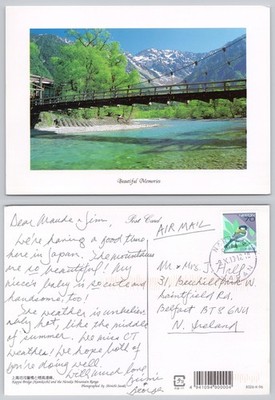 Beautiful Memories
Post Card
AIR MAIL
Dear Maude & Jim,
We're having a good time
here in Japan. The mountains
are so beautiful! My
niece's baby is so cute and
handsome, too!
The weather is unbeliev-
ably hot, like the middle
of summer. We miss CT
weather! We hope both of
you're doing well.
With much love,
George
Mr & Mrs J.
31, Beechill Park W.
Saintfield Rd,
Belfast BT8 6NU
N. Ireland
70
上高地河童橋と穂高連峰
Kappa Bridge (Kamikochi) and the Hotaka Mountains Range